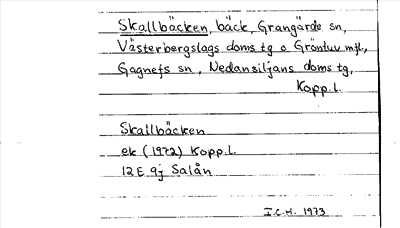 Skallbäcken, bäck, Grangärde sn,
Västerbergslags doms tg o Gröntuv mfl.,
Gagnefs sn, Nedansiljans doms tg,
Kopp.l.
Skallbäcken
ek (1972) Kopp.l.
12E 9j Salån
I.C.H. 1973